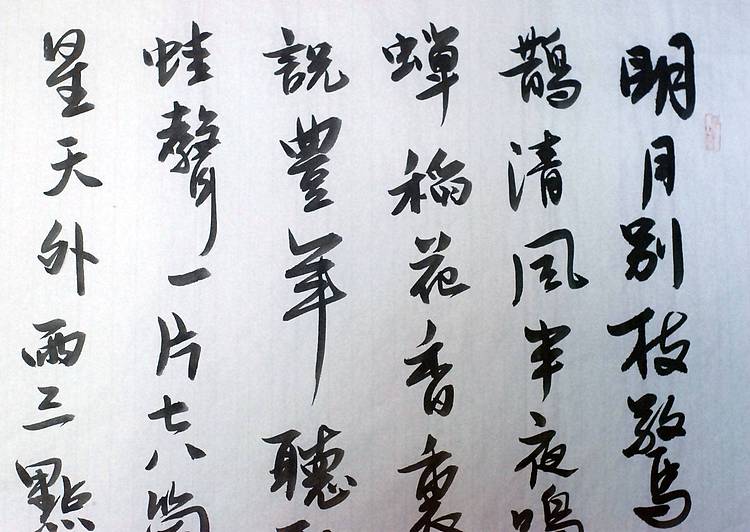 明月别枝驚
鵲清風半夜鳴
蟬稻花香裏
說豐年聽
蛙聲一片七八箇
星天外兩三點